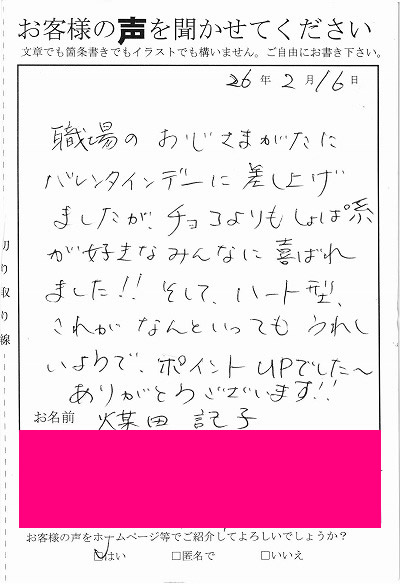 お客様の声を聞かせてください
文章でも箇条書きでもイラストでも構いません。ご自由にお書き下さい。
26年2月16日
職場のおじさまがたに
バレンタインデーに差し上げ
ましたが、チョコよりもしょぱ系
が好きなみんなに喜ばれ
ました!!そして、ハート型、
これがなんといってもうれし
いようで、ポイントUPでした〜
ありがとうございます!!
お名前 煤田 記子
お客様の声をホームページ等でご紹介してよろしいでしょうか?
☑はい □匿名で □いいえ
切り取り線